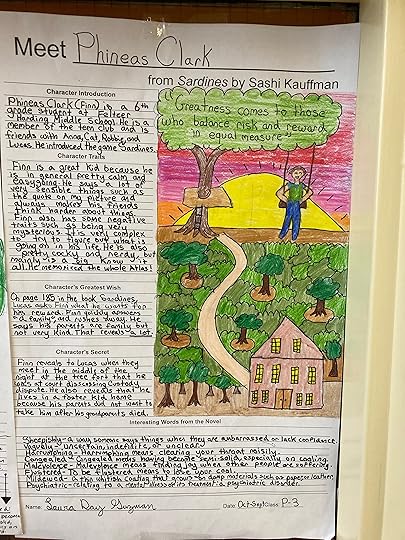 Meet Phineas Clark
from Sardines by Sashi Kauffman
Character Introduction
Phineas Clark (Finn) is a 6th
grade student at Feltzer
Harding Middle School. He is a
member of the teen club and is
friends with Anna, Cat, Robbie, and
Lucas. He introduced the game Sardines.
Character Traits
Finn is a great kid because he
is in general pretty calm and
easygoing. He says a lot of
very sensible things such as
the quote on my picture and
always makes his friends
think harder about things.
Finn also has some negative
traits such as being very
mysterious. It is very complex
to try to figure out what is
going on in his life. He is also
pretty cocky and nerdy, but
mainly is a big Know-it
all. He memorized the whole Atlas!
Character's Greatest Wish
On page 185 in the book Sardines,
Lucas asks Finn what he wants for
his reward. Finn quickly answers
"a family" and rushes away. He
says his parents are family but
not very kind. That reveals a lot.
Character's Secret
Finn reveals to Lucas when they
meet in the middle of the
night at the tree fort that he
was at court discussing custody
dispute. He also reveals that he
lives in a foster kid home
because his parents did not want to
take him after his grandparents died.
"Greatness comes to those
who balance risk and reward
in equal measure"
Interesting Words from the Novel
Sheepishly- a way someone says things when they are embarrassed or lack confidence.
Vaguely- Uncertain, indefinite, or unclear.
Harrumphing- Harrumphing means clearing your throat noisily.
Congealed- Congealed means having become semi-solid, especially on cooling.
Malevolence- Malevolence means finding joy when other people are suffering.
Flustered- To be flustered means to lose your cool.
Mildewed- a thin whitish coating that grows on damp materials such as paper or leather.
Psychiatric- relating to a mental illness or its treatment: a psychiatric disorder.
Name: Laura Day Guzman Date: Oct-Sept Class: P-3